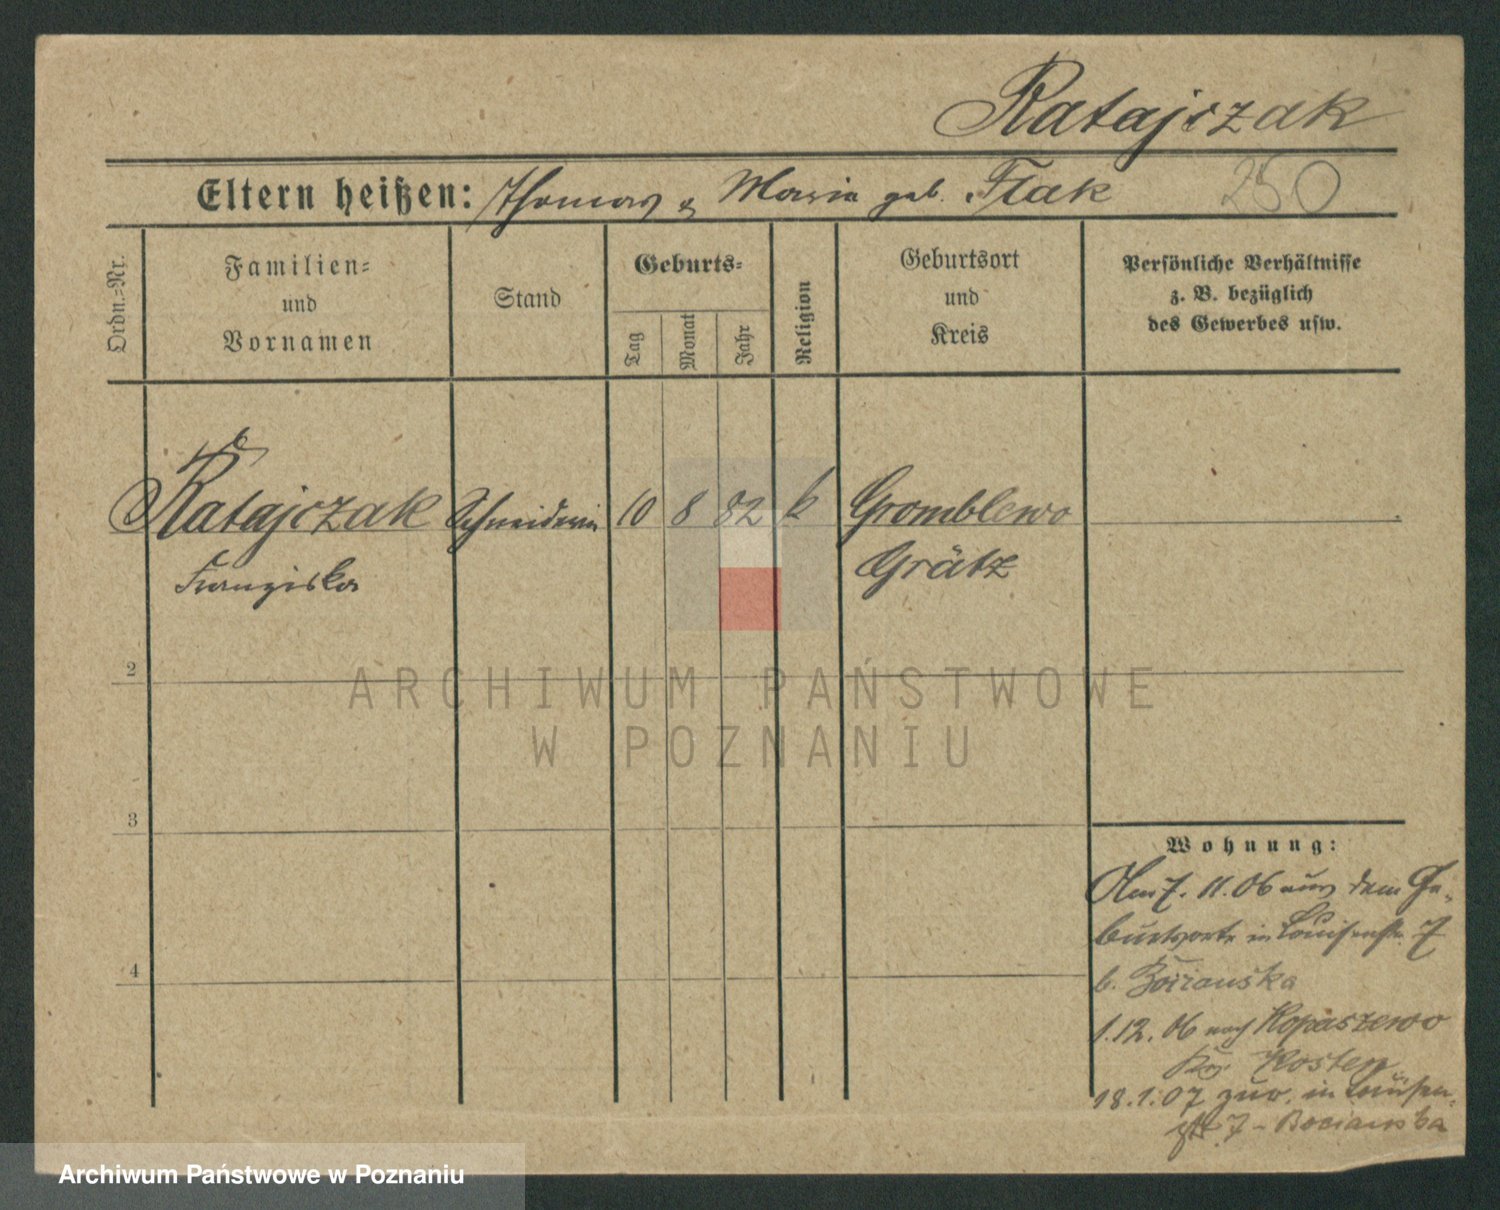 Ratajczak
Eltern heißen: Thomas & Maria geb. Flak 250
Ordn.-Nr.
Familien-
und
Vornamen
Stand
Geburts-
Tag
Monat
Jahr
Religion
Geburtsort
und
Kreis
Persönliche Verhältnisse
z. B. bezüglich
des Gewerbes usw.
Ratajczak Schneiderin 10 8 82 k Gromblewo
Franziska Grätz
ARCHIWUM PAŃSTWOWE
W POZNANIU
2
3
4
Wohnung:
Am 7. 11. 06 aus dem Ge-
burtsorte in Louisenstr. 7
b. Bocianska
1.12. 06 nach Kopaszewo
Krs. Kosten
18.1.07 zur. in Louisen-
str. 7 - Bocianska
Archiwum Państwowe w Poznaniu